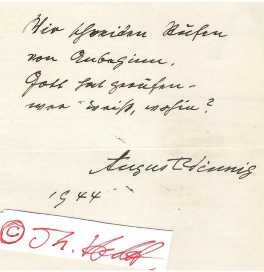 Wir schreiten Stufen
von Anbeginn.
Gott hat gerufen –
wer weiß, wohin?
August Winnig
1944
© Th.